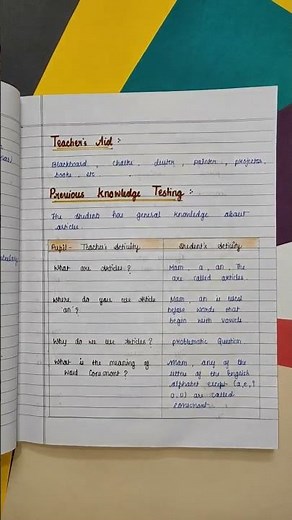 Teacher's Aid :-
Blackboard, chalks, duster, pointer, projector,
books, etc
Previous Knowledge Testing :-
The student has general knowledge about
articles
Pupil- Teacher's Activity
Student's Activity
What are articles ?
Mam, a, an, the
are called articles.
Where do you use article
'an' ?
Mam an is used
before words that
begin with vowels
Why do we use Articles ?
problematic Question
What is the meaning of
word Consonant ?
Mam, any of the
letters of the English
alphabet except (a, e, i
o, u) are called
consonant.